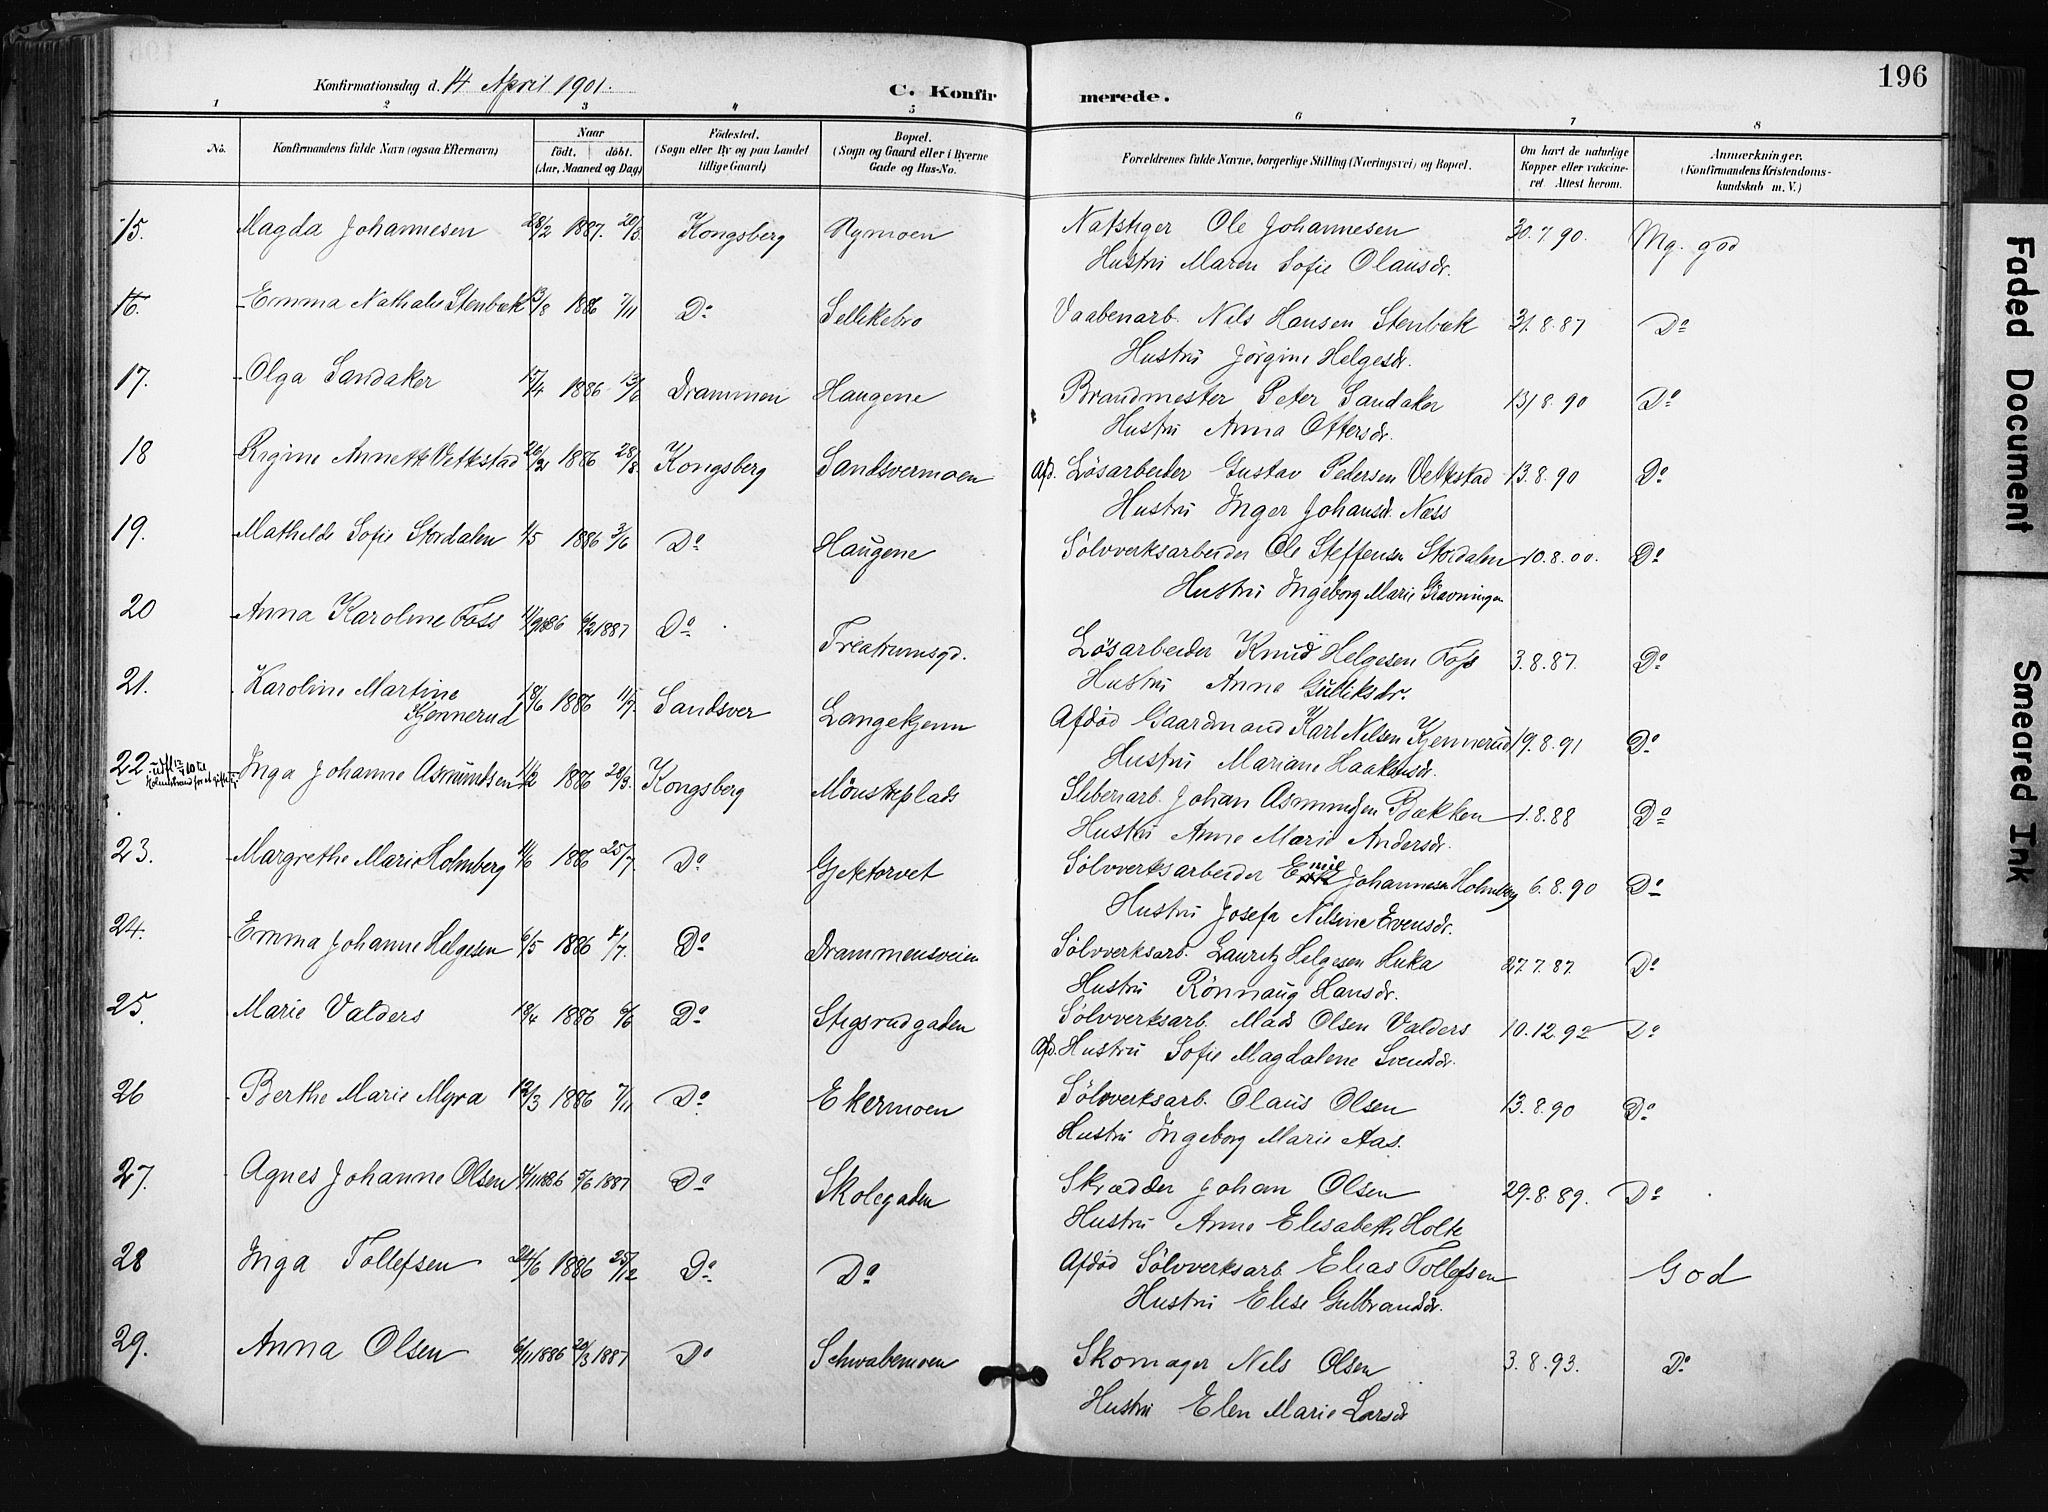 196
Konfirmationsdag d. 14 April 1901.
C. Konfirmerede.
1 2 3 4 5 6 7 8
No.
Konfirmandens fulde Navn (ogsaa Efternavn)
Naar
födt. döbt.
(Aar, Maaned og Dag)
Födested.
(Sogn eller By og paa Landet tillige Gaard)
Bopæl.
(Sogn og Gaard eller i Byerne Gade og Hus-No.
Forældrenes fulde Navne, borgerlige Stilling (Næringsvei) og Bopæl.
Om havt de naturlige Kopper eller vakcineret Attest herom.
Anmærkninger.
(Konfirmandens Kristendomskundskab m. V.)
15. Magda Johannesen 28/2 1887. 28/8. Kongsberg Nymoen Natstiger Ole Johannesen 30.7.90. Mg. god
Hustru Maren Sofie Olausdr.
16. Emma Nathalie Stenbæk 13/8 1886 7/11 Do Sellikebro Vaabenarb. Nils Hansen Stenbæk 31.8.87 Do
Hustru Jörgine Helgesdr.
17. Olga Sandaker 15/4 1886 13/6 Drammen Haugene Brandmester Peter Sandaker 13/8.90 Do
Hustru Anna Ottersdr.
18 Rigine Annette Vettestad 1886 28/8 Kongsberg Sandsvermoen Afd. Lösarbeider Gustav Pedersen Vettestad 13.8.90 Do
Hustru Inger Johansdr. Næss
19. Mathilde Sofie Stordalen 1/5 1886 3/6 Do Haugene Sölvverksarbeider Ole Steffensen Stordalen 10.8.00. Do
Hustru Ingeborg Marie Gravningen
20 Anna Karoline Foss 11/9 1886 6/2 1887 Do Treatrumsgd. Lösarbeider Knud Helgesen Foss 3.8.87. Do
Hustru Anne Gulliksdr.
21. Karoline Martine Kjennerud 18/6 1886 11/7. Sandsver Langekjenn Afdöd Gaardmand Karl Nilsen Kjennerud 19.8.91 Do
Hustru Mariane Haakensdr.
22 Inga Johanne Asmundsen 11/2 1886 28/3. Kongsberg Mönsteplads Sliberiarb. Johan Asmundsen Bækken 1.8.88 Do
Hustru Anne Marie Andersdr.
23. Margrethe Marie Holmberg 11/6 1886 25/7. Do Gjetetorvet Sölvverksarbeider Emil Johannesen Holmberg 6.8.90 Do
Hustru Josefa Nilsine Evensdr.
24. Emma Johanne Helgesen 6/5 1886 4/7. Do Drammensveien Sölvverksarb. Lauritz Helgesen Huka 27.7.87. Do
Hustru Rönnaug Hansdr.
25. Marie Valders 18/4 1886 6/6 Do Stigsrudgaden Sölvverksarb. Mads Olsen Valders 10.12.92 Do
Afd. Hustru Sofie Magdalene Svendsdr.
26 Berthe Marie Myra 12/3 1886 7/11 Do Ekermoen Sölvverksarb. Olaus Olsen 13.8.90 Do
Hustru Ingeborg Marie Aas.
27. Agnes Johanne Olsen 4/11 1886 5/6 1887 Do Skolegaden Skrædder Johan Olsen 29.8.89. Do
Hustru Anne Elisabeth Holte
28 Inga Tollefsen 24/6 1886 25/12 Do Do Afdöd Sölvverksarb. Elias Tollefsen God
Hustru Elise Gulbrandsdr.
29. Anna Olsen 6/11 1886 20/3 1887 Do Schwabemoen Skomager Nels Olsen 3.8.93. Do
Hustru Elen Marie Larsdr
Faded Document
Smeared Ink